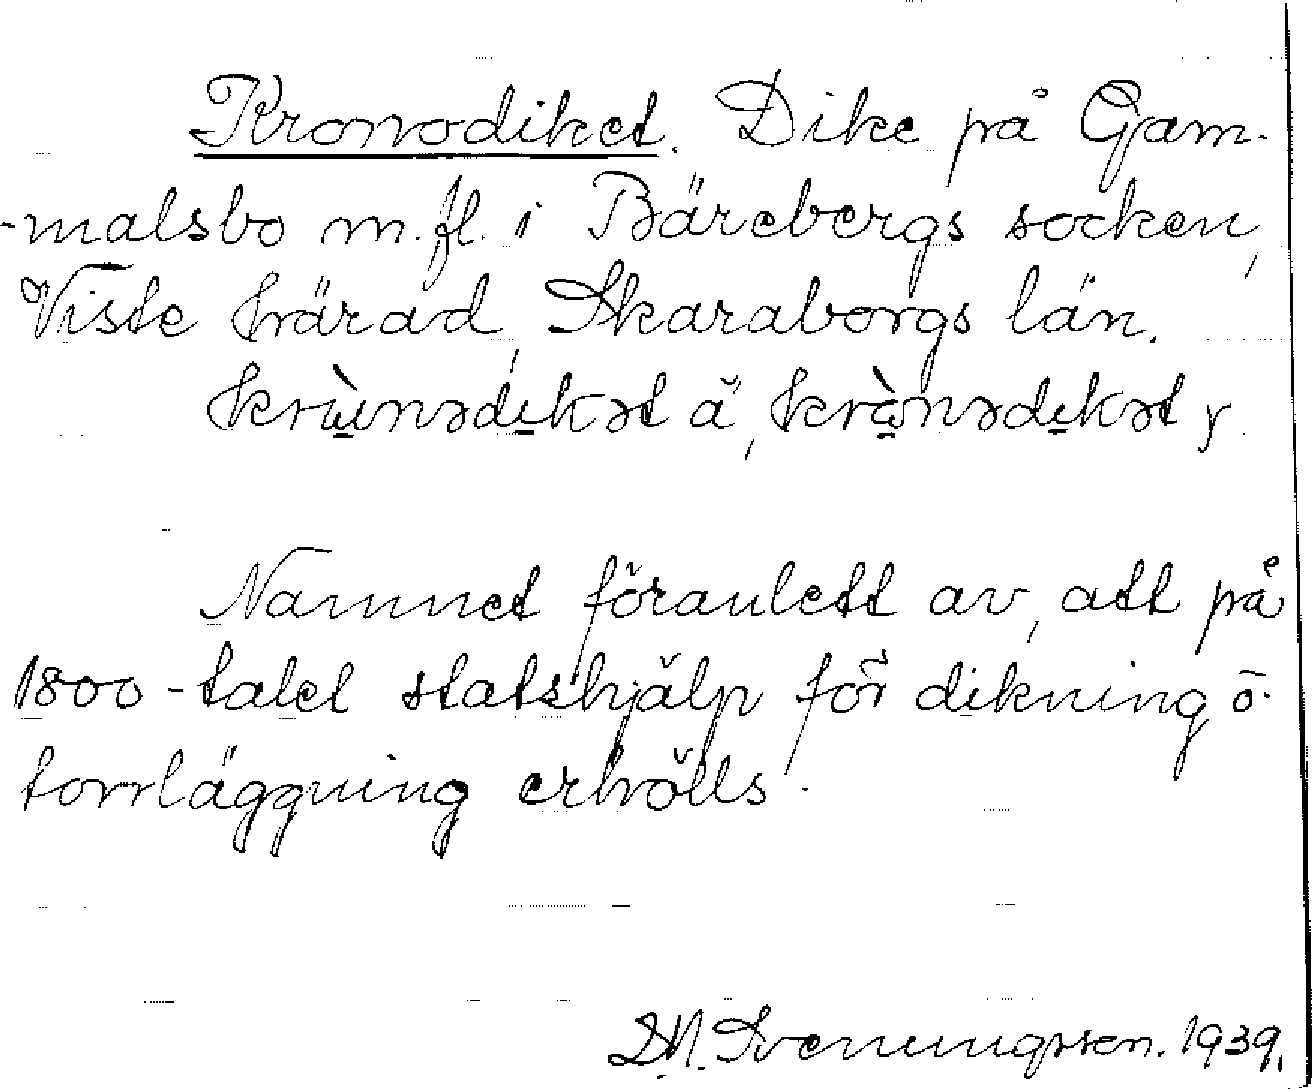 Kronodiket. Dike på Gam-
-malsbo m.fl. i Bärebergs socken,
Viste härad, Skaraborgs län.
krùnədɩkət ä, krànədɩkət y.
Namnet föranlett av, att på
1800-talet statshjälp för dikning o.
torrläggning erhölls.
D.N. Sveningsson. 1939.